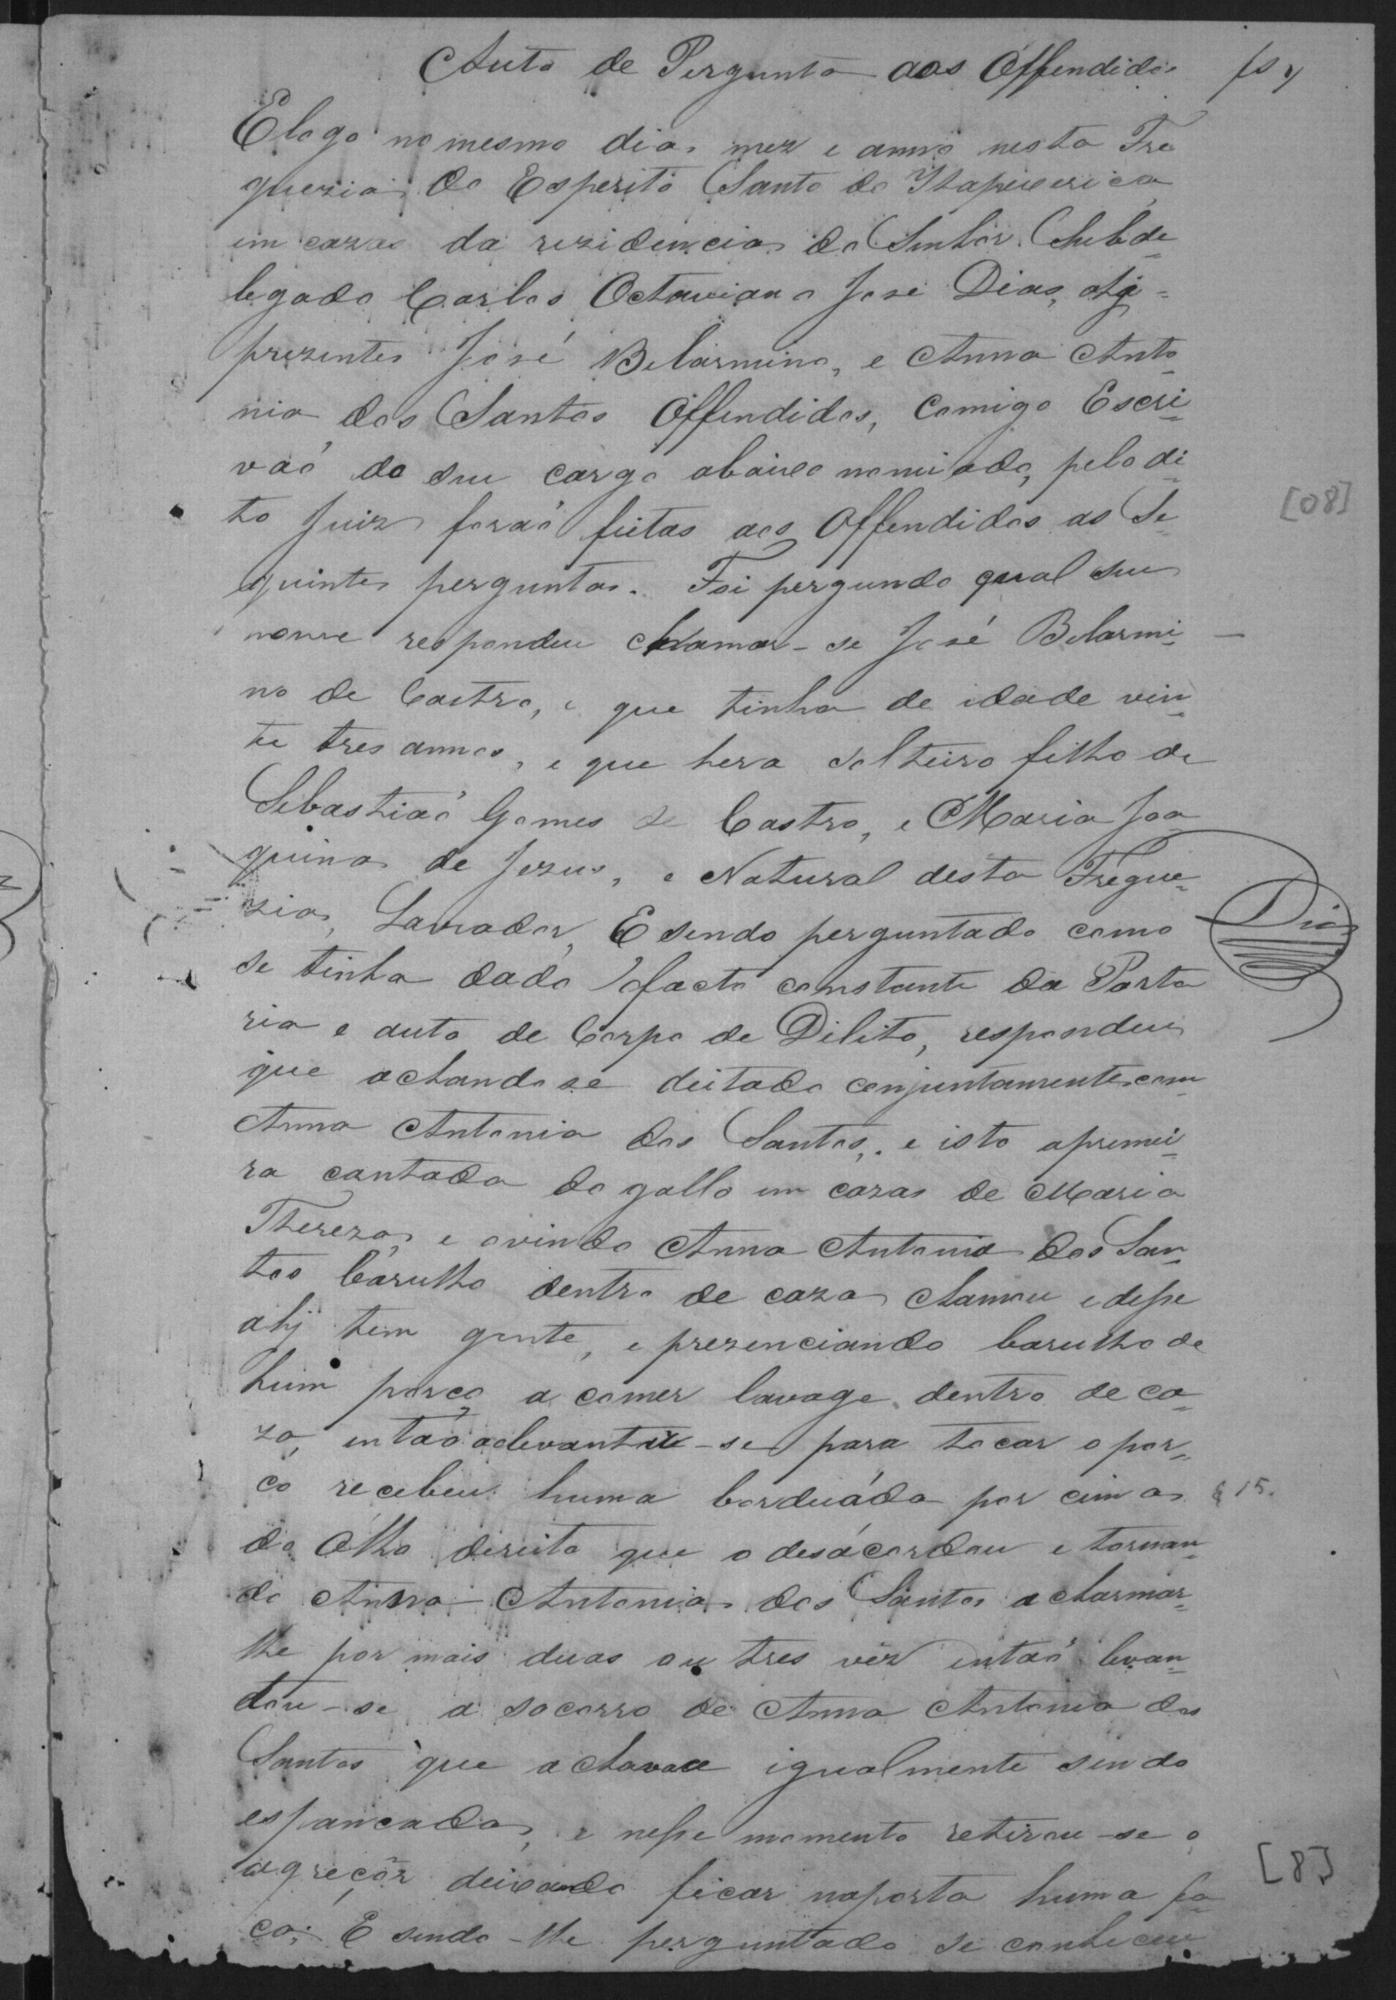 Auto de Pergunta aos Offendidos fs
E logo no mesmo dia mez e anno nesta Fre
guezia do Esperito Santo da Itapecerica
em cazas da rezidencia do Senhor Subde=
legado Carlos Octaviano José Dias, ahj=
prezentes José Belarmino, e Anna Anto
nia dos Santos Offendidos, comigo Escri=
vaõ do seu cargo abaixo nomiado, pelo di
to Juiz foraõ feitas aos Offendidos as Se=
guintes perguntas. Foi pergundo qual seu
nome respondeu chamar-se José Belarmi=
no de Castro, e que tinha de idade vin=
te tres annos, e que hera solteiro filho de
Sebastiaõ Gomes de Castro, e Maria Joa
quina de Jezus, e Natural desta Fregue=
zia, Lavrador, E sendo perguntado como
Dias
se tinha dado o facto constante da Porta
ria e auto de Corpo de Dilito, respondeu
que achando se deitado conjuntamente com
Anna Antonia dos Santos, e isto apremei=
ra cantada do gallo em cazas de Maria
Thereza, e ovindo Anna Antonia dos San=
tos barulho dentro de caza chamou e disse
ahj tem gente, e prezenciando barulho de
hum porco a comer lavage dentro de ca=
za, entaõ alevantou-se para tocar o por=
co recebeu huma borduáda por cima § 15.
do olho direito que o desácordou e tornan=
do Anna Antonia dos Santos a charmar=
lhe por mais duas ou tres vez entaõ levan=
tou-se a socorro de Anna Antonia dos
Santos que achava igualmente sendo
espancada, e nesse momento retirou-se o
agreçôr deixando ficar naporta huma fa=
ca; E sendo-lhe perguntado se conheceu
[08]
[8]